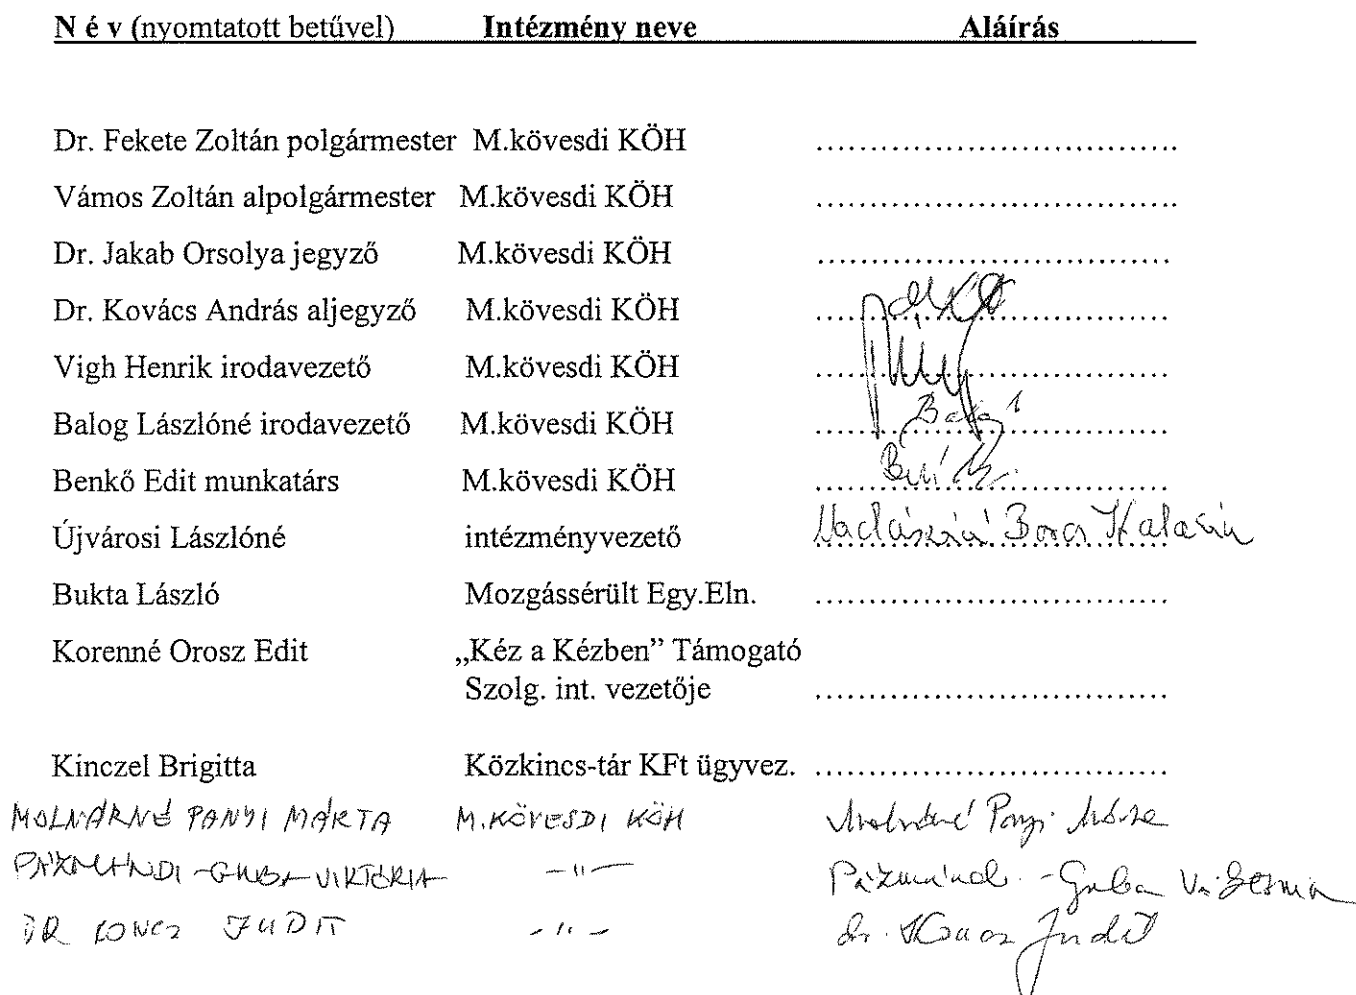 N é v (nyomtatott betűvel) Intézmény neve Aláírás
Dr. Fekete Zoltán polgármester M.kövesdi KÖH ....................................
Vámos Zoltán alpolgármester M.kövesdi KÖH ....................................
Dr. Jakab Orsolya jegyző M.kövesdi KÖH ....................................
Dr. Kovács András aljegyző M.kövesdi KÖH
Vigh Henrik irodavezető M.kövesdi KÖH
Balog Lászlóné irodavezető M.kövesdi KÖH
Benkő Edit munkatárs M.kövesdi KÖH
Újvárosi Lászlóné intézményvezető
Bukta László Mozgássérült Egy.Eln. ....................................
Korenné Orosz Edit „Kéz a Kézben” Támogató
Szolg. int. vezetője ....................................
Kinczel Brigitta Közkincs-tár KFt ügyvez. ....................................
MOLNÁRNÉ PANYI MÁRTA M.KÖVESDI KÖH Molnárné Panyi Márta
PÁZMÁNDI-GUBA VIKTÓRIA -"- Pázmándi-Guba Viktória
DR KONCZ JUDIT -"- dr. Koncz Judit